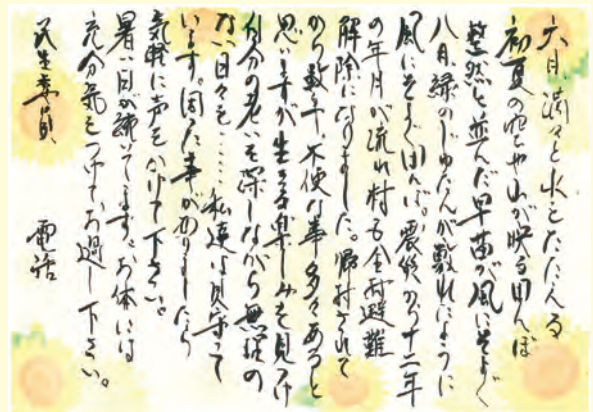 六月、満々と水をたたえる
初夏の空や山が映る田んぼ
整然と並んだ早苗が風にそよぐ
八月、緑のじゅたんが敷れたように
風にそよぐ田んぼ。震災から十二年
の年月が流れ村も全村避難
解除になりました。帰村されて
から数年、不便な事多々あると
思いますが生きる楽しみを見つけ
自分の老いを深しながら無理の
ない日々を……私達は見守って
います。困った事がありましたら
気軽に声をかけて下さい。
暑い日が続いてます。お体には
充分気をつけてお過し下さい。
民生委員 電話